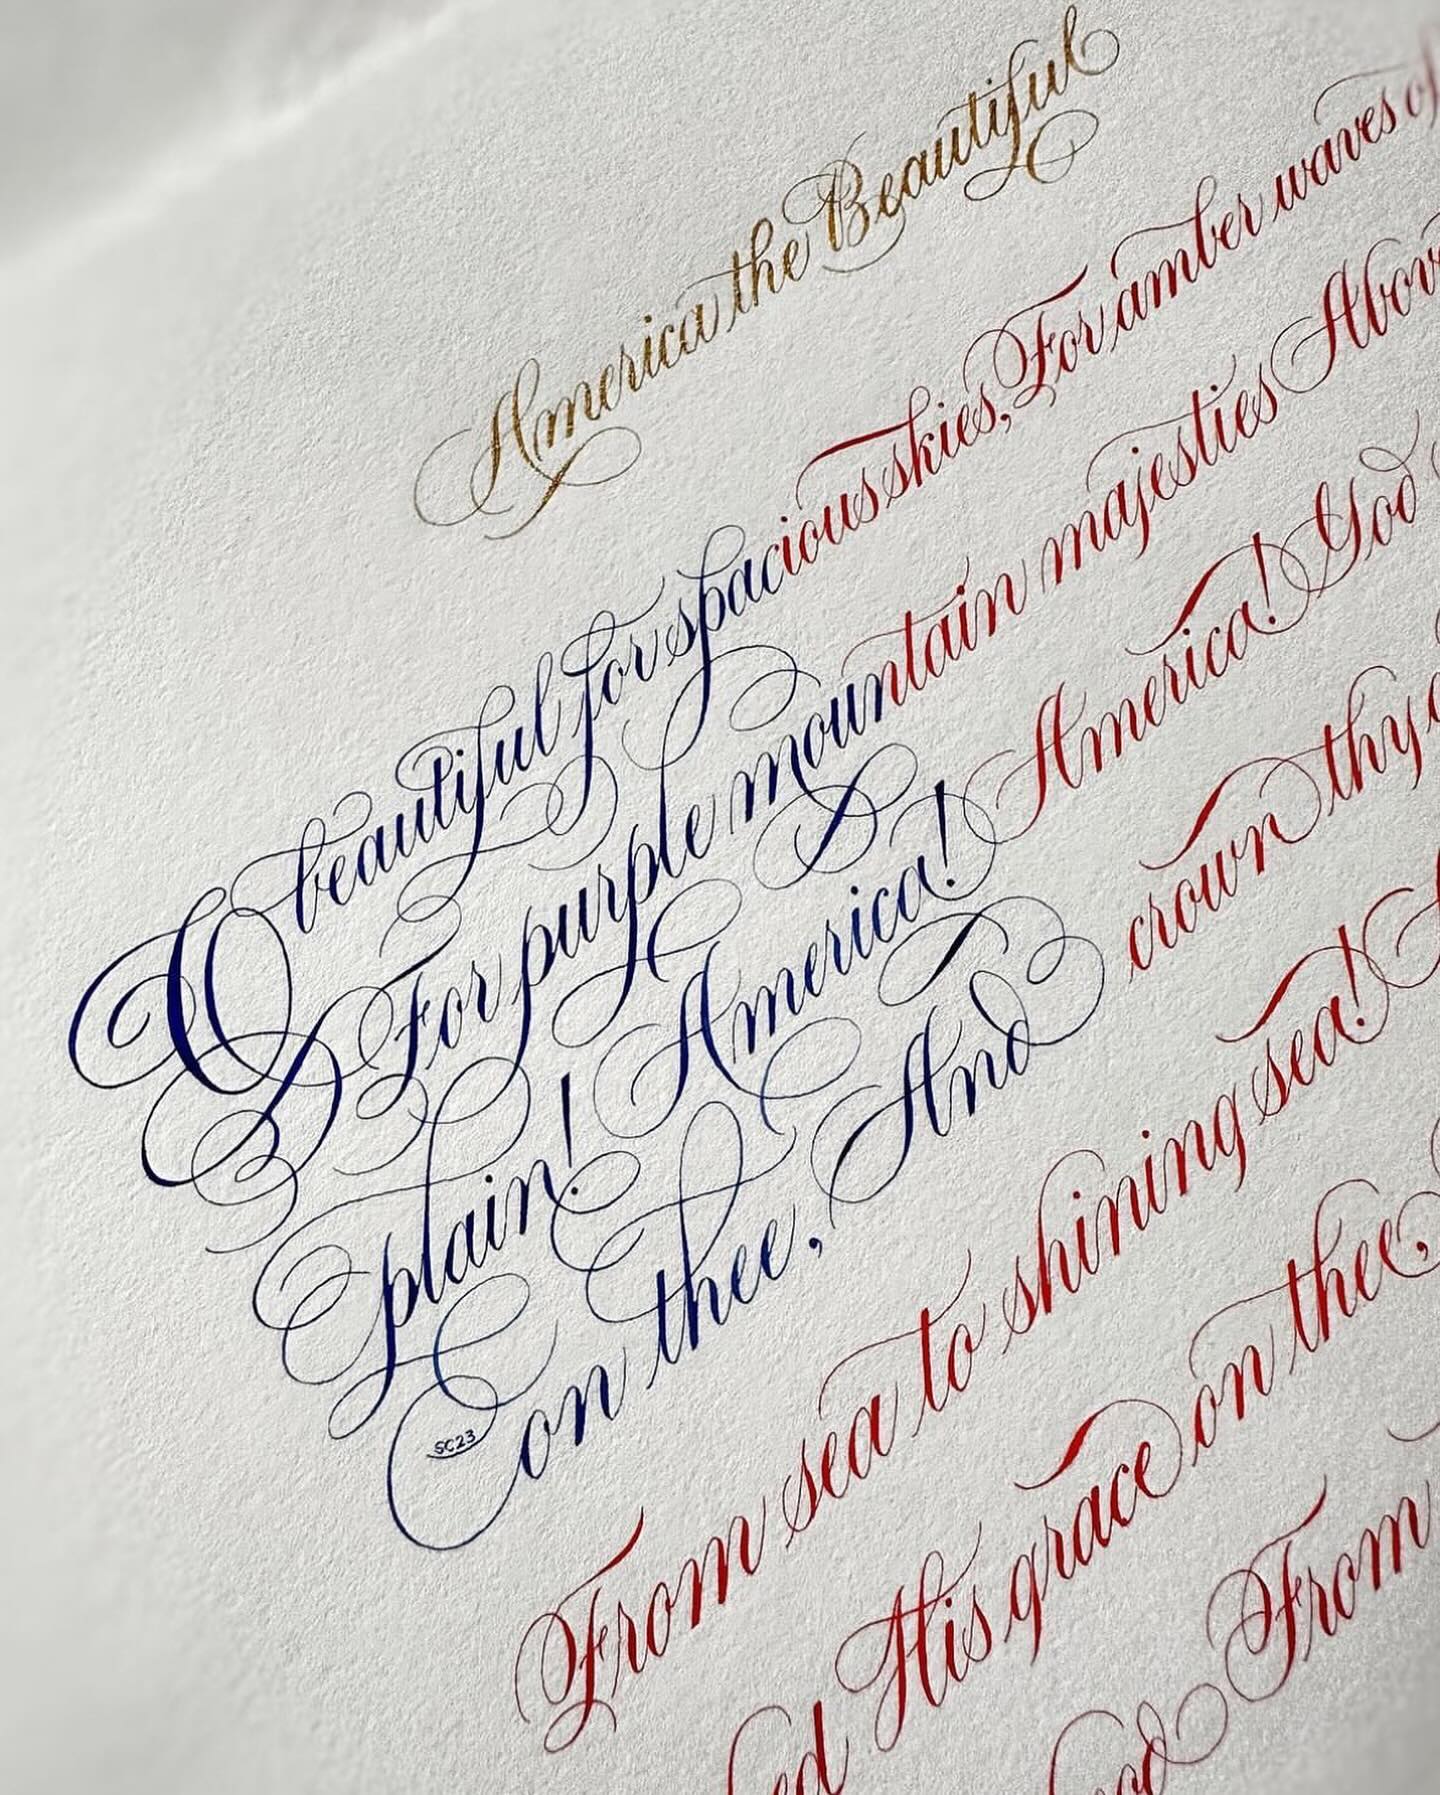 America the Beautiful
O beautiful for spacious skies, For amber waves of
For purple mountain majesties Above
plain! America! America! God
on thee, And crown thy
SC23
From sea to shining sea!
His grace on thee,
From